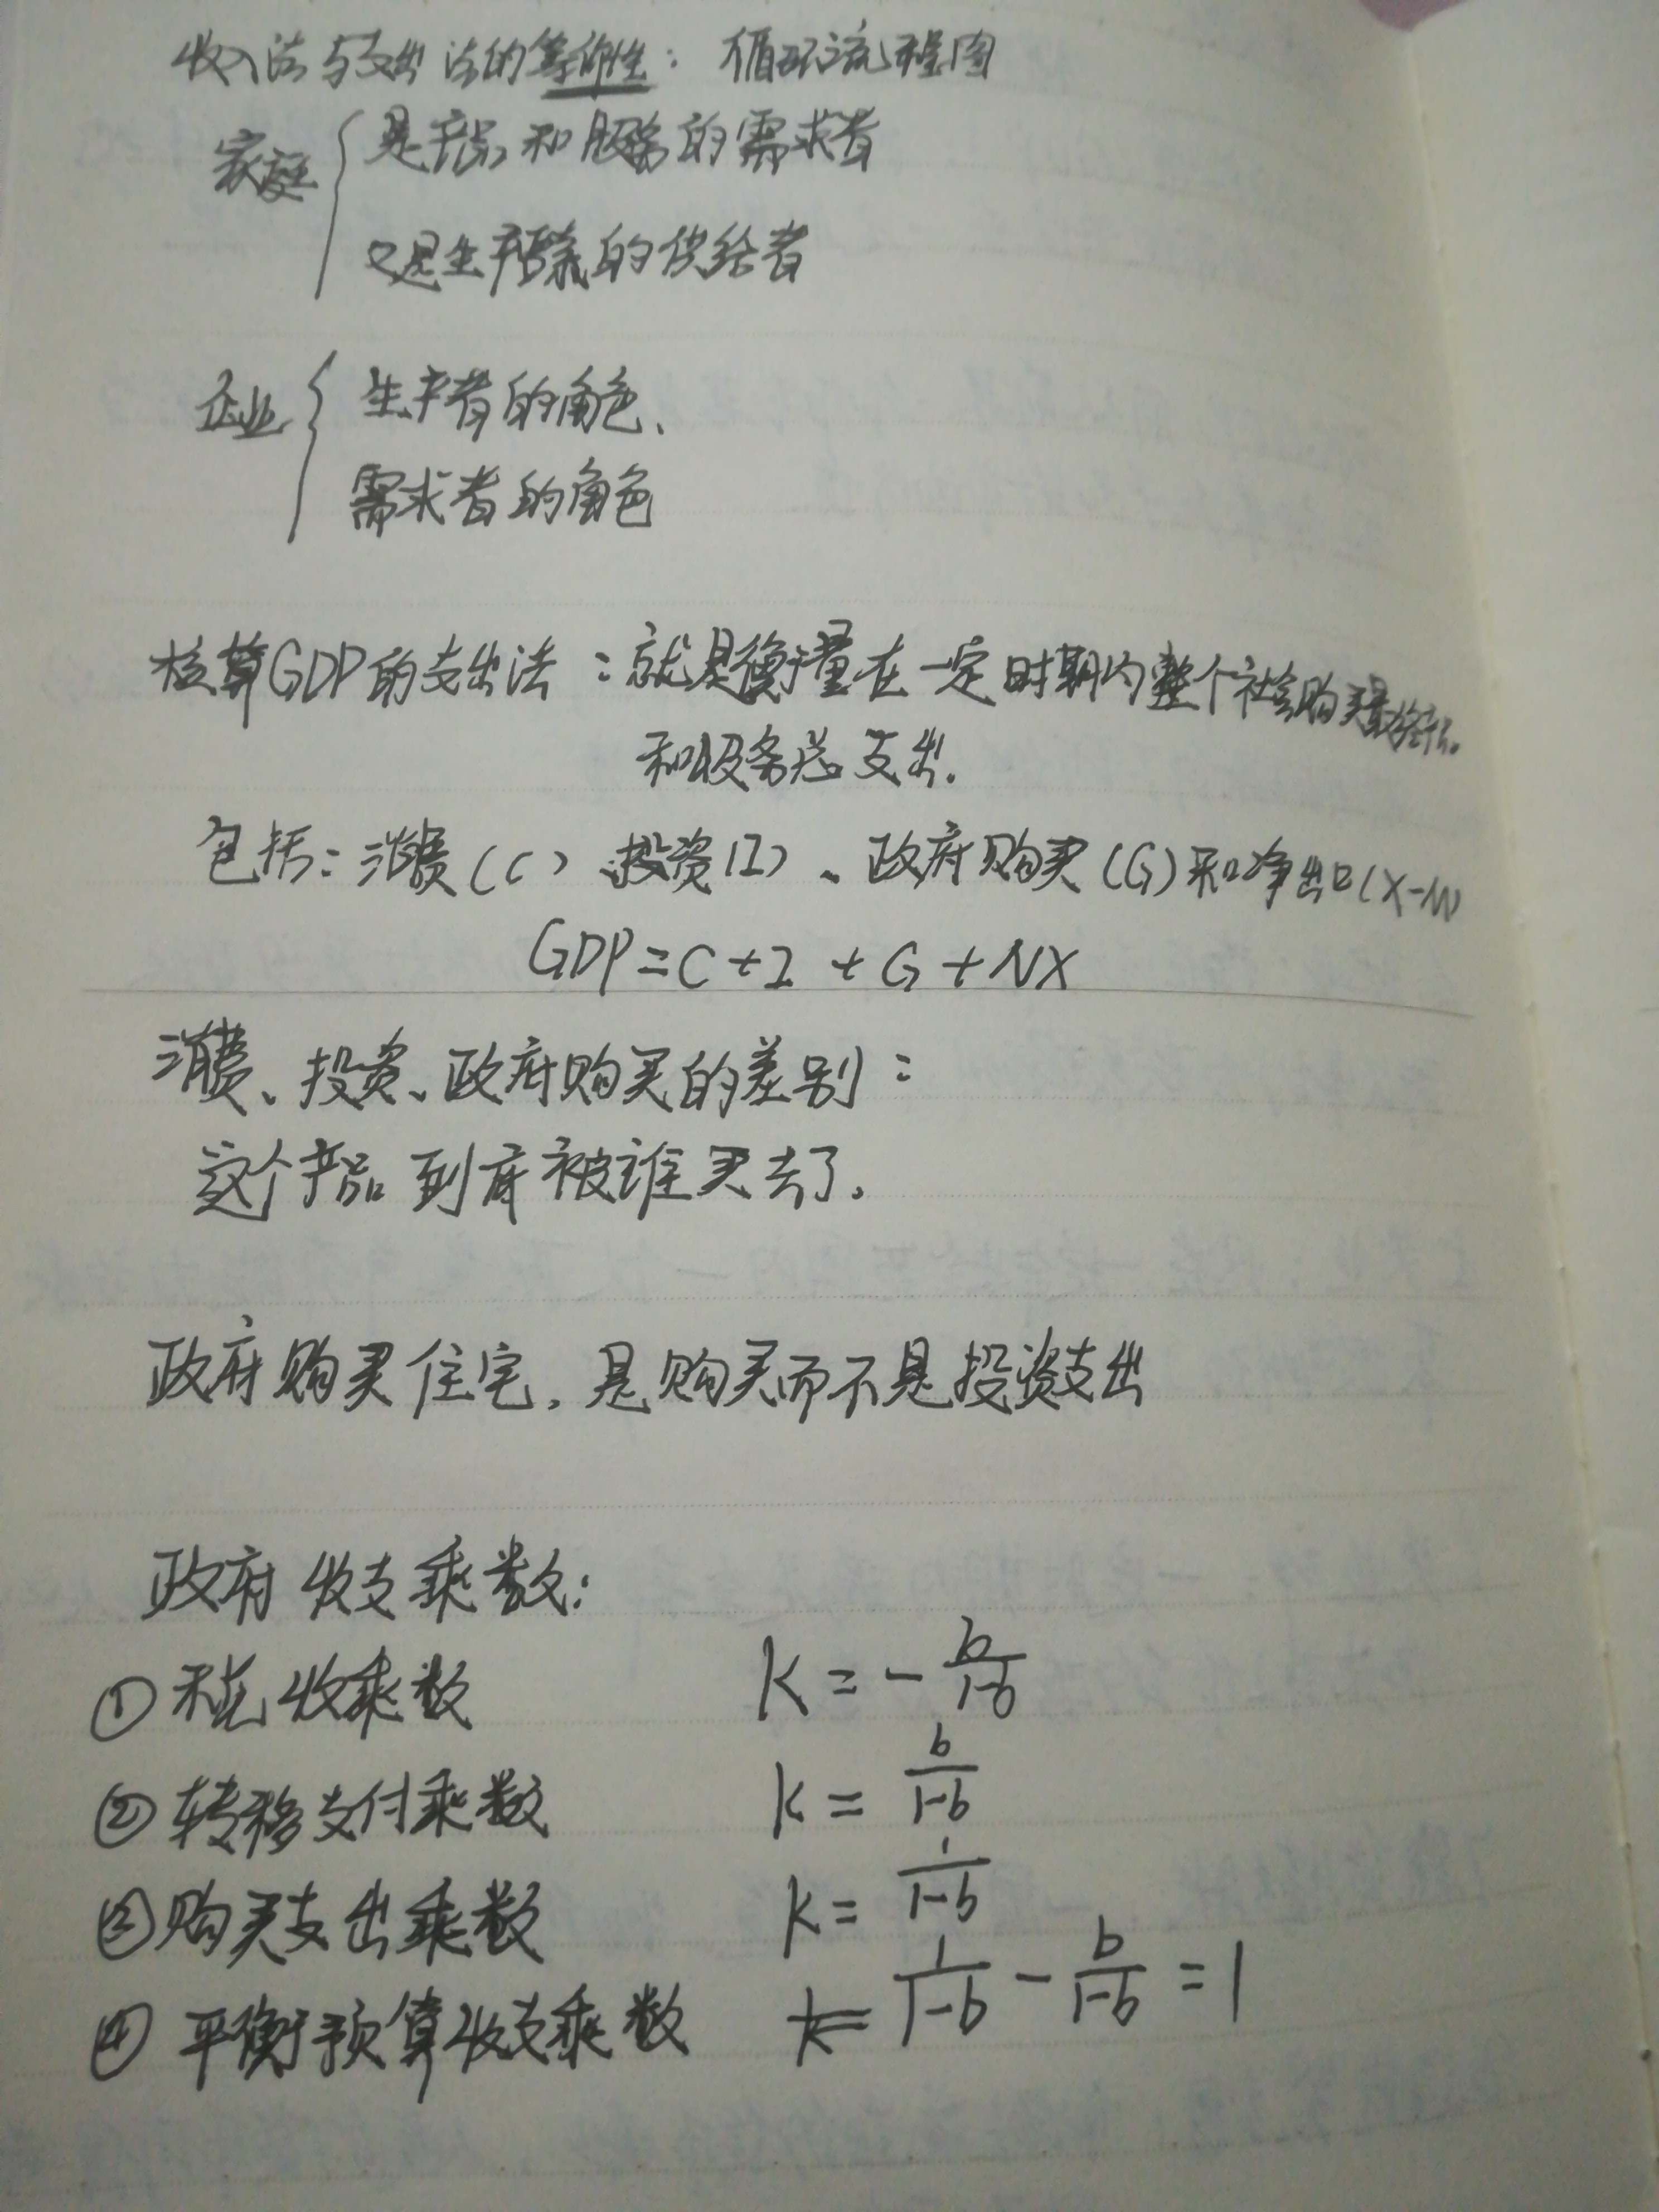 收入法与支出法的等价性：循环流程图
家庭 { 是产品和服务的需求者
又是生产要素的供给者
企业 { 生产者的角色、
需求者的角色
核算GDP的支出法：就是衡量在一定时期内整个社会购买最终产品
和服务总支出.
包括：消费(C)、投资(I)、政府购买(G)和净出口(X-M)
GDP=C+I+G+NX
消费、投资、政府购买的差别：
这个产品到底被谁买去了.
政府购买住宅,是购买而不是投资支出
政府收支乘数:
①税收乘数 K=-b/(1-b)
②转移支付乘数 k=b/(1-b)
③购买支出乘数 k=1/(1-b)
④平衡预算收支乘数 k=1/(1-b)-b/(1-b)=1